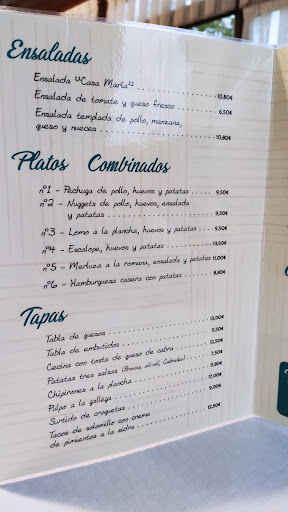 Ensaladas
Ensalada "Casa María" 10,80€
Ensalada de tomate y queso fresco 6,50€
Ensalada templada de pollo, manzana,
queso y nueces 10,80€
Platos Combinados
nº1 - Pechuga de pollo, huevos y patatas 9,50€
nº2 - Nuggets de pollo, huevos, ensalada
y patatas 9,50€
nº3 - Lomo a la plancha, huevos y patatas 9,50€
nº4 - Escalope, huevos y patatas 13,50€
nº5 - Merluza a la romana, ensalada y patatas 11,00€
nº6 - Hamburguesa casera con patatas 8,80€
Tapas
Tabla de quesos 13,00€
Tabla de embutidos 11,50€
Cecina con tosta de queso de cabra 12,50€
Patatas tres salsas (Brava, alioli, Cabrales) 7,50€
Chipirones a la plancha 11,80€
Pulpo a la gallega 17,00€
Surtido de croquetas 9,80€
Tacos de solomillo con crema
de pimientos a la sidra 13,50€